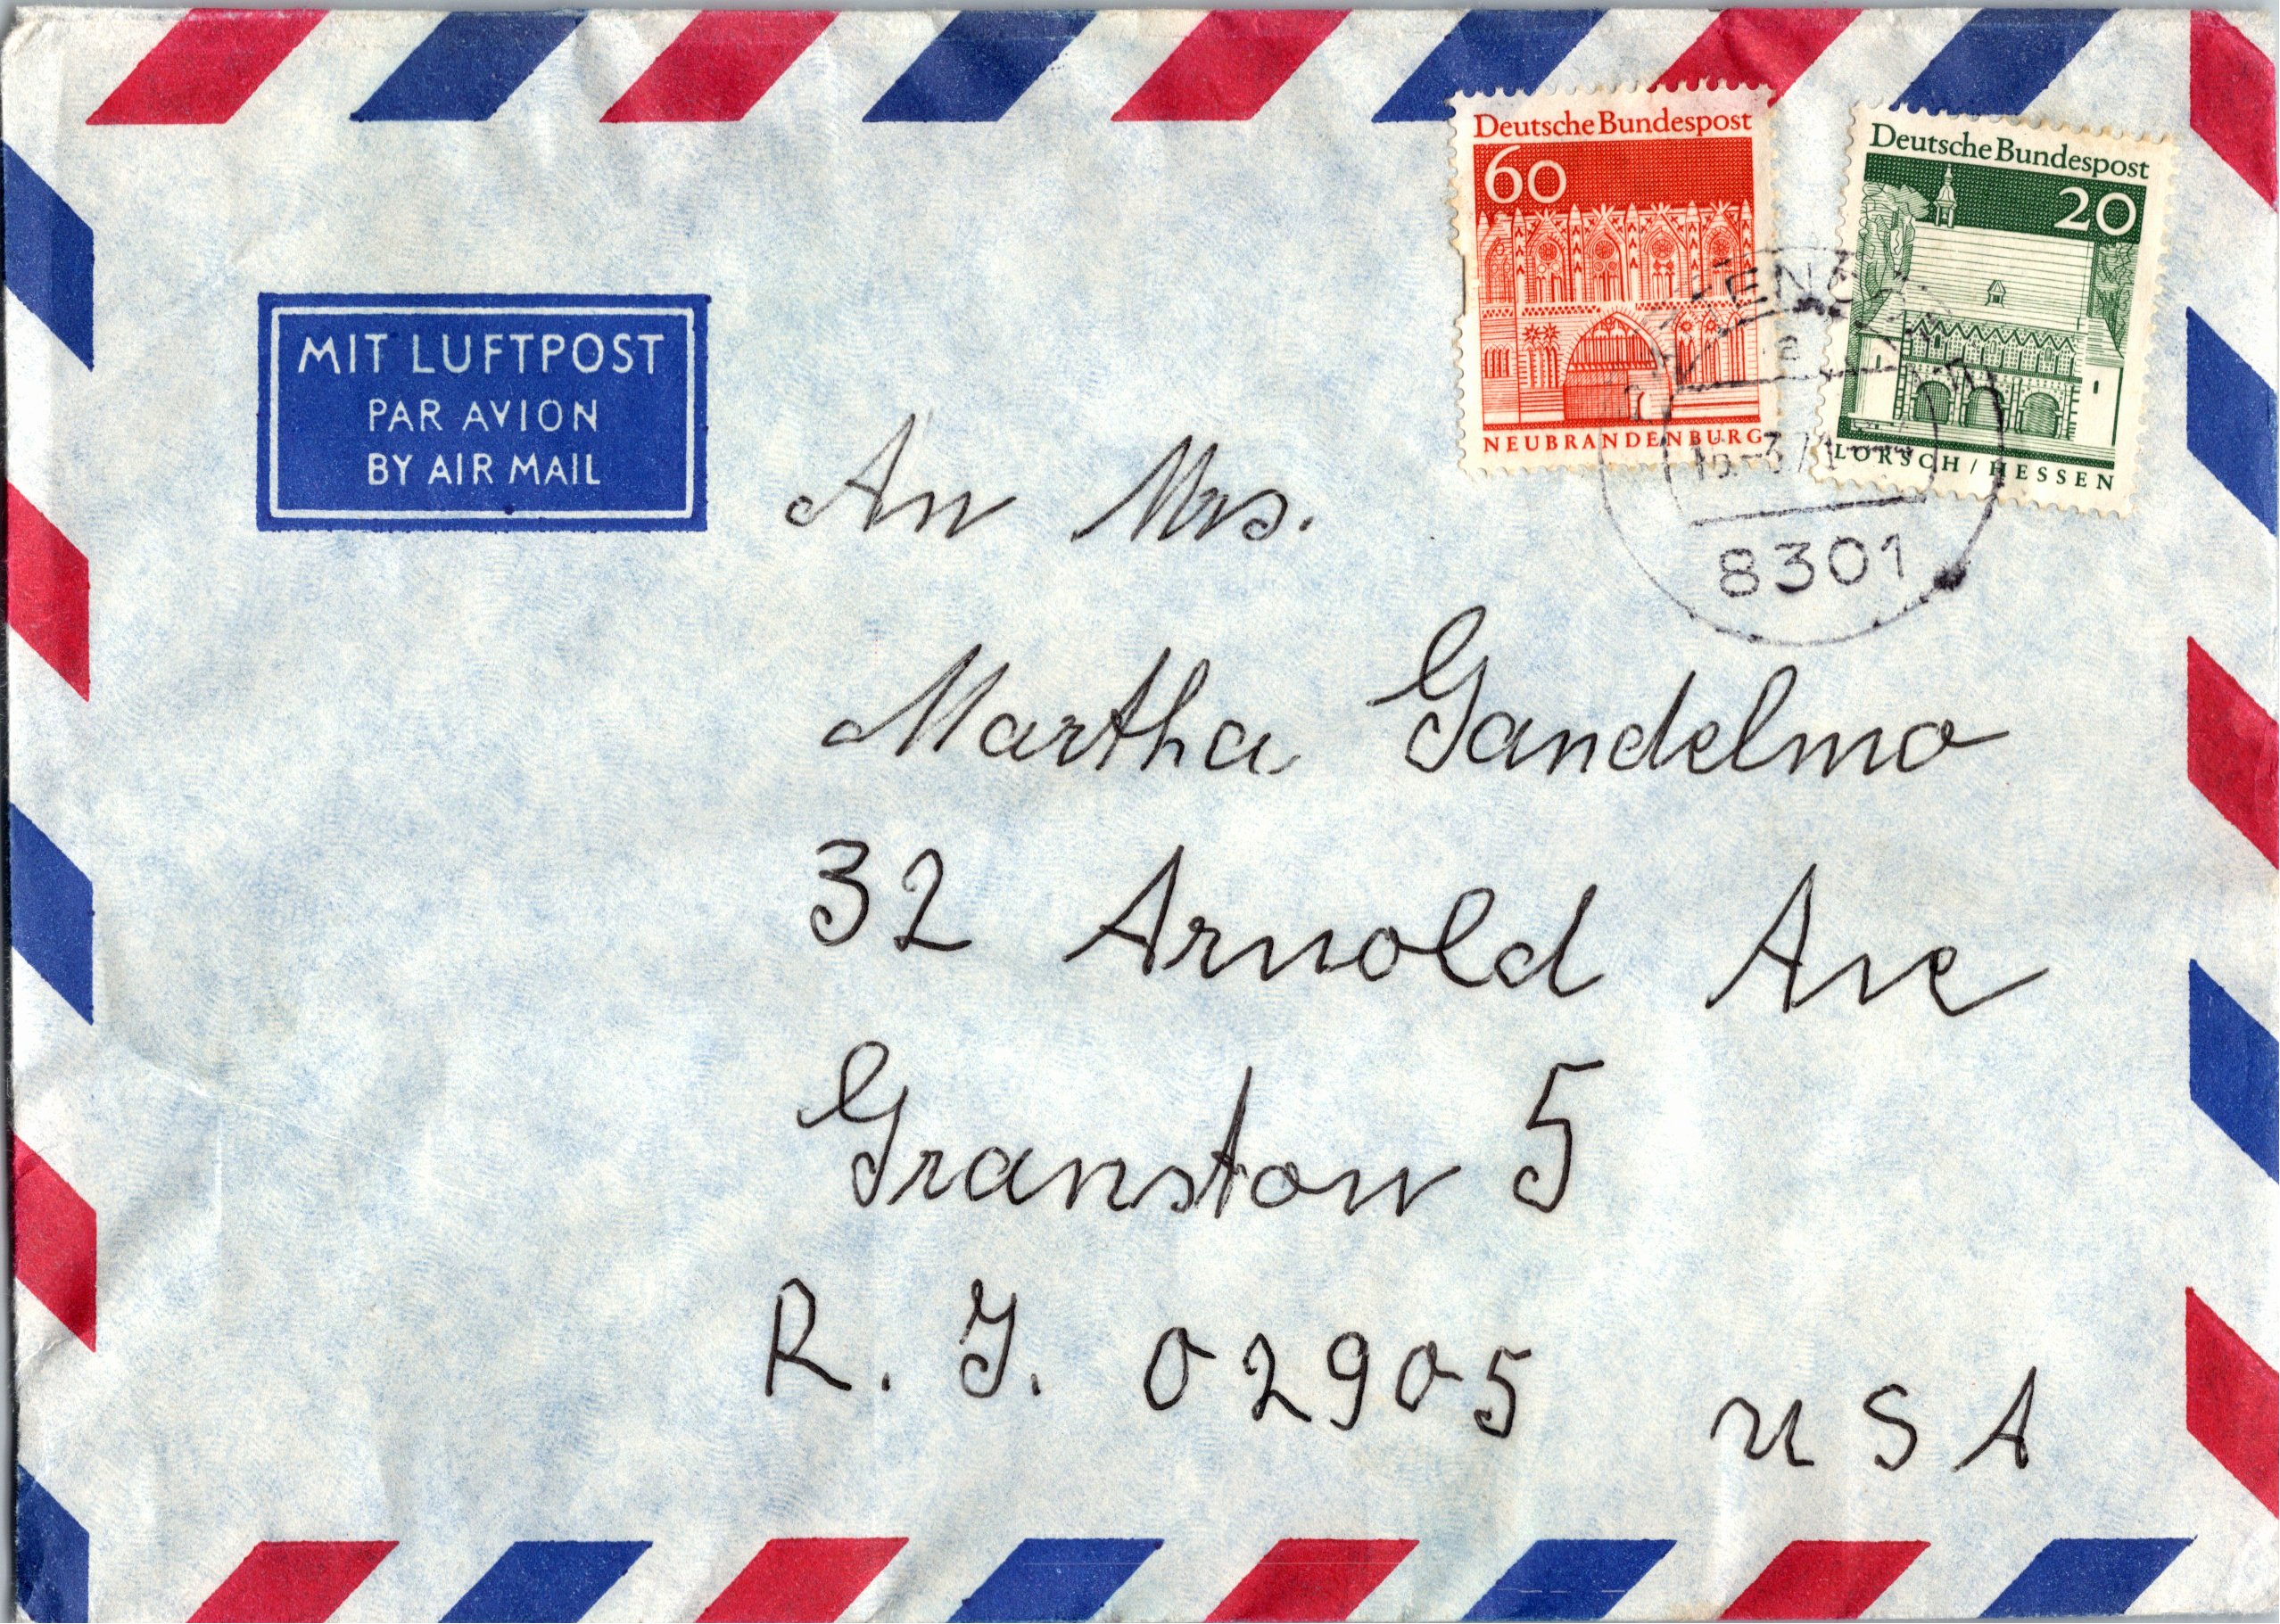 Deutsche Bundespost
60
NEUBRANDENBURG
Deutsche Bundespost
20
LORSCH / HESSEN
8301
MIT LUFTPOST
PAR AVION
BY AIR MAIL
An Mrs.
Martha Gandelmo
32 Arnold Ave
Granston 5
R. I. 02905 USA